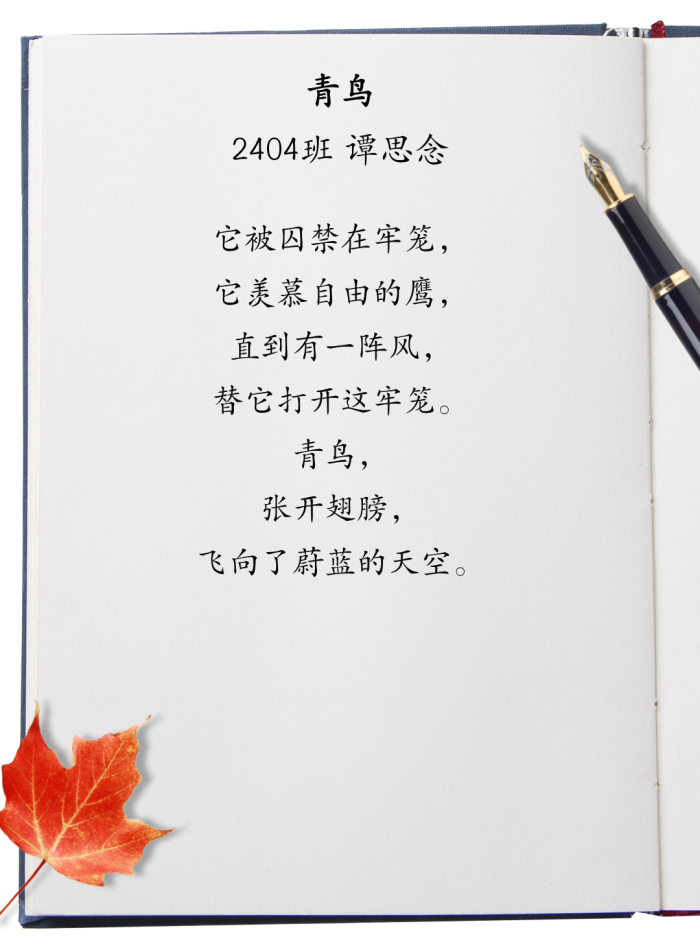 青鸟
2404班 谭思念
它被囚禁在牢笼，
它羡慕自由的鹰，
直到有一阵风，
替它打开这牢笼。
青鸟，
张开翅膀，
飞向了蔚蓝的天空。